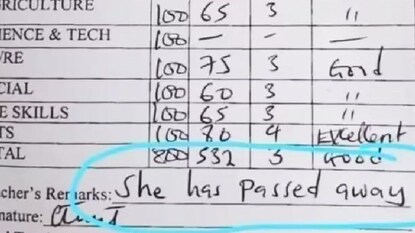 RICULTURE 100 65 3 "
IENCE & TECH 100 — — —
URE 100 75 3 Good
CIAL 100 60 3 "
E SKILLS 100 65 3 "
TS 100 80 4 Excellent
TAL 800 532 3 Good
cher's Remarks: She has passed away
nature: